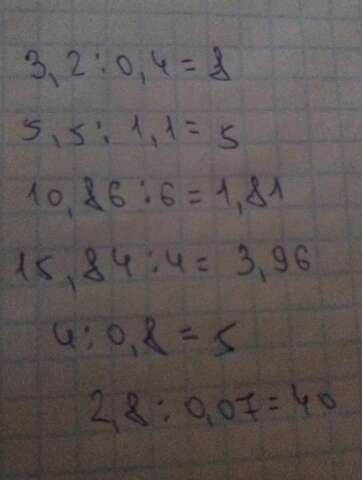 3,2:0,4=8
5,5:1,1=5
10,86:6=1,81
15,84:4=3,96
4:0,8=5
2,8:0,07=40